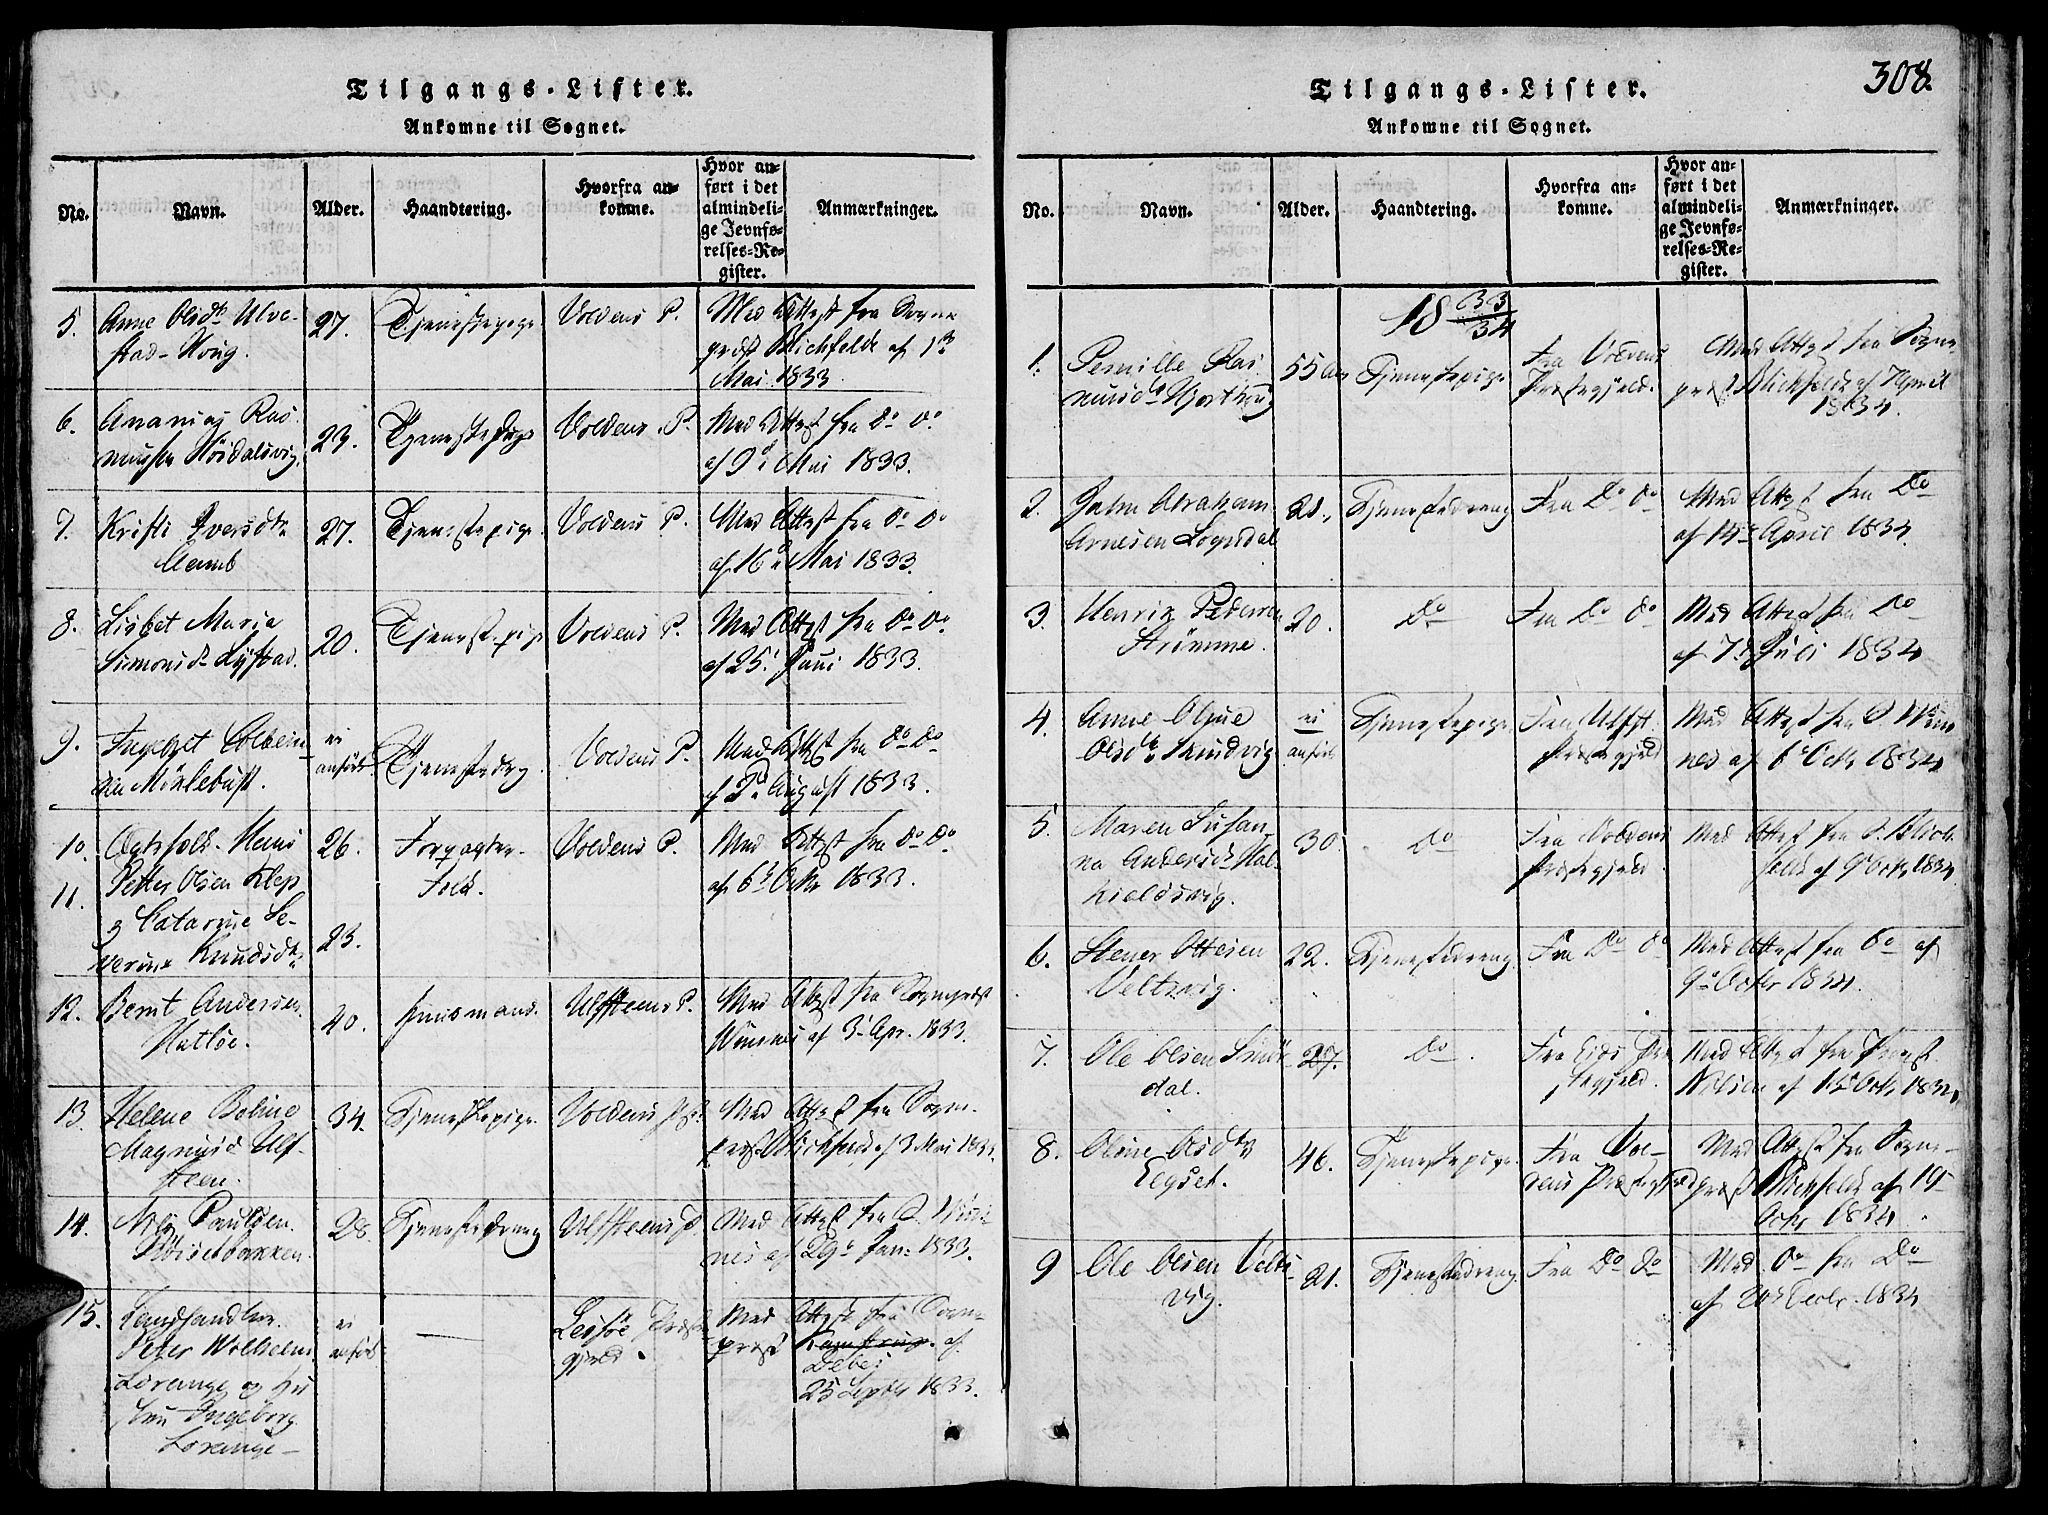 Tilgangs-Lister.
Ankomne til Sognet.
No.
Navn.
Alder.
Haandtering.
Hvorfra an-
komne.
Hvor an-
ført i det
almindeli-
ge Jevnfø-
relses-Re-
gister.
Anmærkninger.
5. Anne Olsdtr Ulve-
stad-Houg.
27. Tjenestepige Voldens P.
Med Attest fra Sogne
præst Blichfeldt af 1ste
Mai 1833
6. Ananias Ras-
mussen
23. Voldens P.
Med Attest fra do do
af 9de Mai 1833.
7. Kristi Iversdtr
27. Tjenestepige Voldens P.
Med Attest fra do do
af 16de Mai 1833.
8. Lisbet Maria
Simonsdr Lystad
20. Tjenestepige Voldens P.
Med Attest fra do do
af 25. Juni 1833.
9.
Mörlebust.
ei
anført
Tjenestedreng Voldens P.
Med Attest fra do do
August 1833.
10. Ægtefolk. Hans
11. Petter Olsen Klep
& Catarine Se-
verine Knudsdtr
26.
23.
Forpagter-
Folk.
Voldens P.
Med Attest fra do do
af 6te Octbr 1833.
12. Bernt Andersen
Hatløe.
40. Huusmand. Ulfsteens P.
Med Attest fra Sognepræst
af 3. Apr. 1833.
13. Helene Boline
Magnusd Ulf-
steen.
34. Tjenestepige Voldens P.
Med Attest fra Sogne-
præst Blichfeldt af 3 Mai 1833.
14. Nils Paulsen
Höisetbakken.
28. Tjenestedreng Ulfsteens P.
Med Attest fra S.
af 29de Jan. 1833.
15. Landhandler
Peter Wilhelm
Lorange og Hu-
stru Ingeborg
Lorange-
ei
anført
Lessöe Præste-
gjeld.
Med Attest fra Sogne-
præst af
Debes
25 Septbr 1833.
308.
Tilgangs-Lister.
Ankomne til Sognet.
No.
Navn.
Alder.
Haandtering.
Hvorfra an-
komne.
Hvor an-
ført i det
almindeli-
ge Jevnfø-
relses-Re-
gister.
Anmærkninger.
18 33/34
1. Pernille Ras-
musdr Hjorthoug
55 Aar Tjenestepige
Fra Voldens
Præstegjeld.
Med Attest fra Sogne-
præst Blichfeldt af April
1834.
2. John Abraham
Arnesen Løgsdal
21. Tjenestedreng Fra do do
Med Attest fra do
af 14de April 1834.
3. Henrik Pedersen
Strömme.
20. do Fra do do
Med Attest fra do
af 7de Juli 1834
4. Anne Oline
Olsdtr
ei
anført
Tjenestepige
Fra Ulfst.
Præstegjeld
Med Attest fra S.
af 6te Octbr 1834
5. Maren Susan-
na Andersd Hal-
kieldsvig.
30. do
Fra Voldens
Præstegjeld
Med Attest fra S. Blich-
feldt af 9de Octbr 1834
6. Stener Ottesen
Veltsvig.
22. Tjenestedreng Fra do do
Med Attest fra do af
9de Octbr 1834.
7. Ole Olsen Smör-
dal.
27. do.
Fra Eids Præ-
stegjeld.
Med Attest fra Provst
Nilsen af 15de Octbr 1834
8. Oline Olsdtr
Legset.
46. Tjenestepige
Fra Vol-
dens Præstegjeld
Med Attest fra Sogne-
præst Blichfeldt af 19
Octbr 1834.
9 Ole Olsen Velts-
vig.
21. Tjenestedreng Fra do do
Med do fra do
af 20de Octbr. 1834